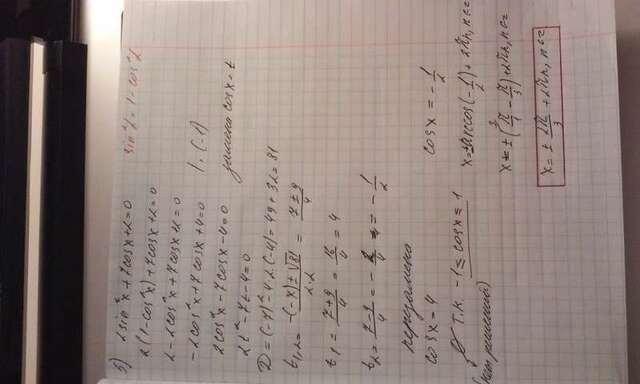 5) 2sin²x+7cosx+2=0 sin²α=1-cos²α
2(1-cos²x)+7cosx+2=0
2-2cos²x+7cosx+2=0
-2cos²x+7cosx+4=0 | ·(-1)
2cos²x-7cosx-4=0 замена cosx=t
2t²-7t-4=0
D=(-7)²-4·2·(-4)=49+32=81
t₁,₂= -(-7)±√81 / 2·2 = 7±9 / 4
t₁= 7+9 / 4 = 16 / 4 = 4
t₂= 7-9 / 4 = - 2 / 4 = - 1 / 2
перезамена
cosx=4 cosx=- 1 / 2
∅ т.к. -1≤cosx≤1 x=±arccos(- 1 / 2)+2πn, n∈z
(нет решений) x=±( ³ π / 1 - π / 3)+2πn, n∈z
x=± 2π / 3 +2πn, n∈z